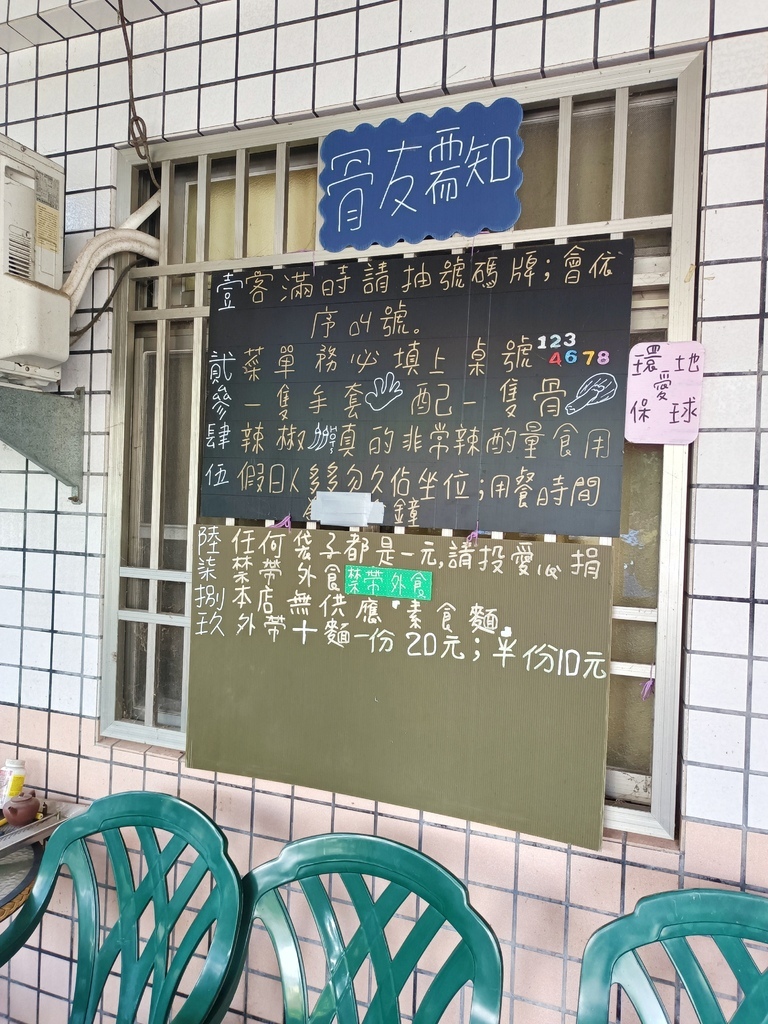 骨友需知
壹客滿時請抽號碼牌;會依
序叫號。
貳菜單務必填上桌號123
4678
參一隻手套配一隻骨
肆辣椒真的非常辣酌量食用
伍假日人多多勿久佔坐位;用餐時間
鐘
陸任何袋子都是一元,請投愛心捐
柒禁帶外食禁帶外食
捌本店無供應"素食麵"
玖外帶+麵一份20元;半份10元
環地
愛
保球